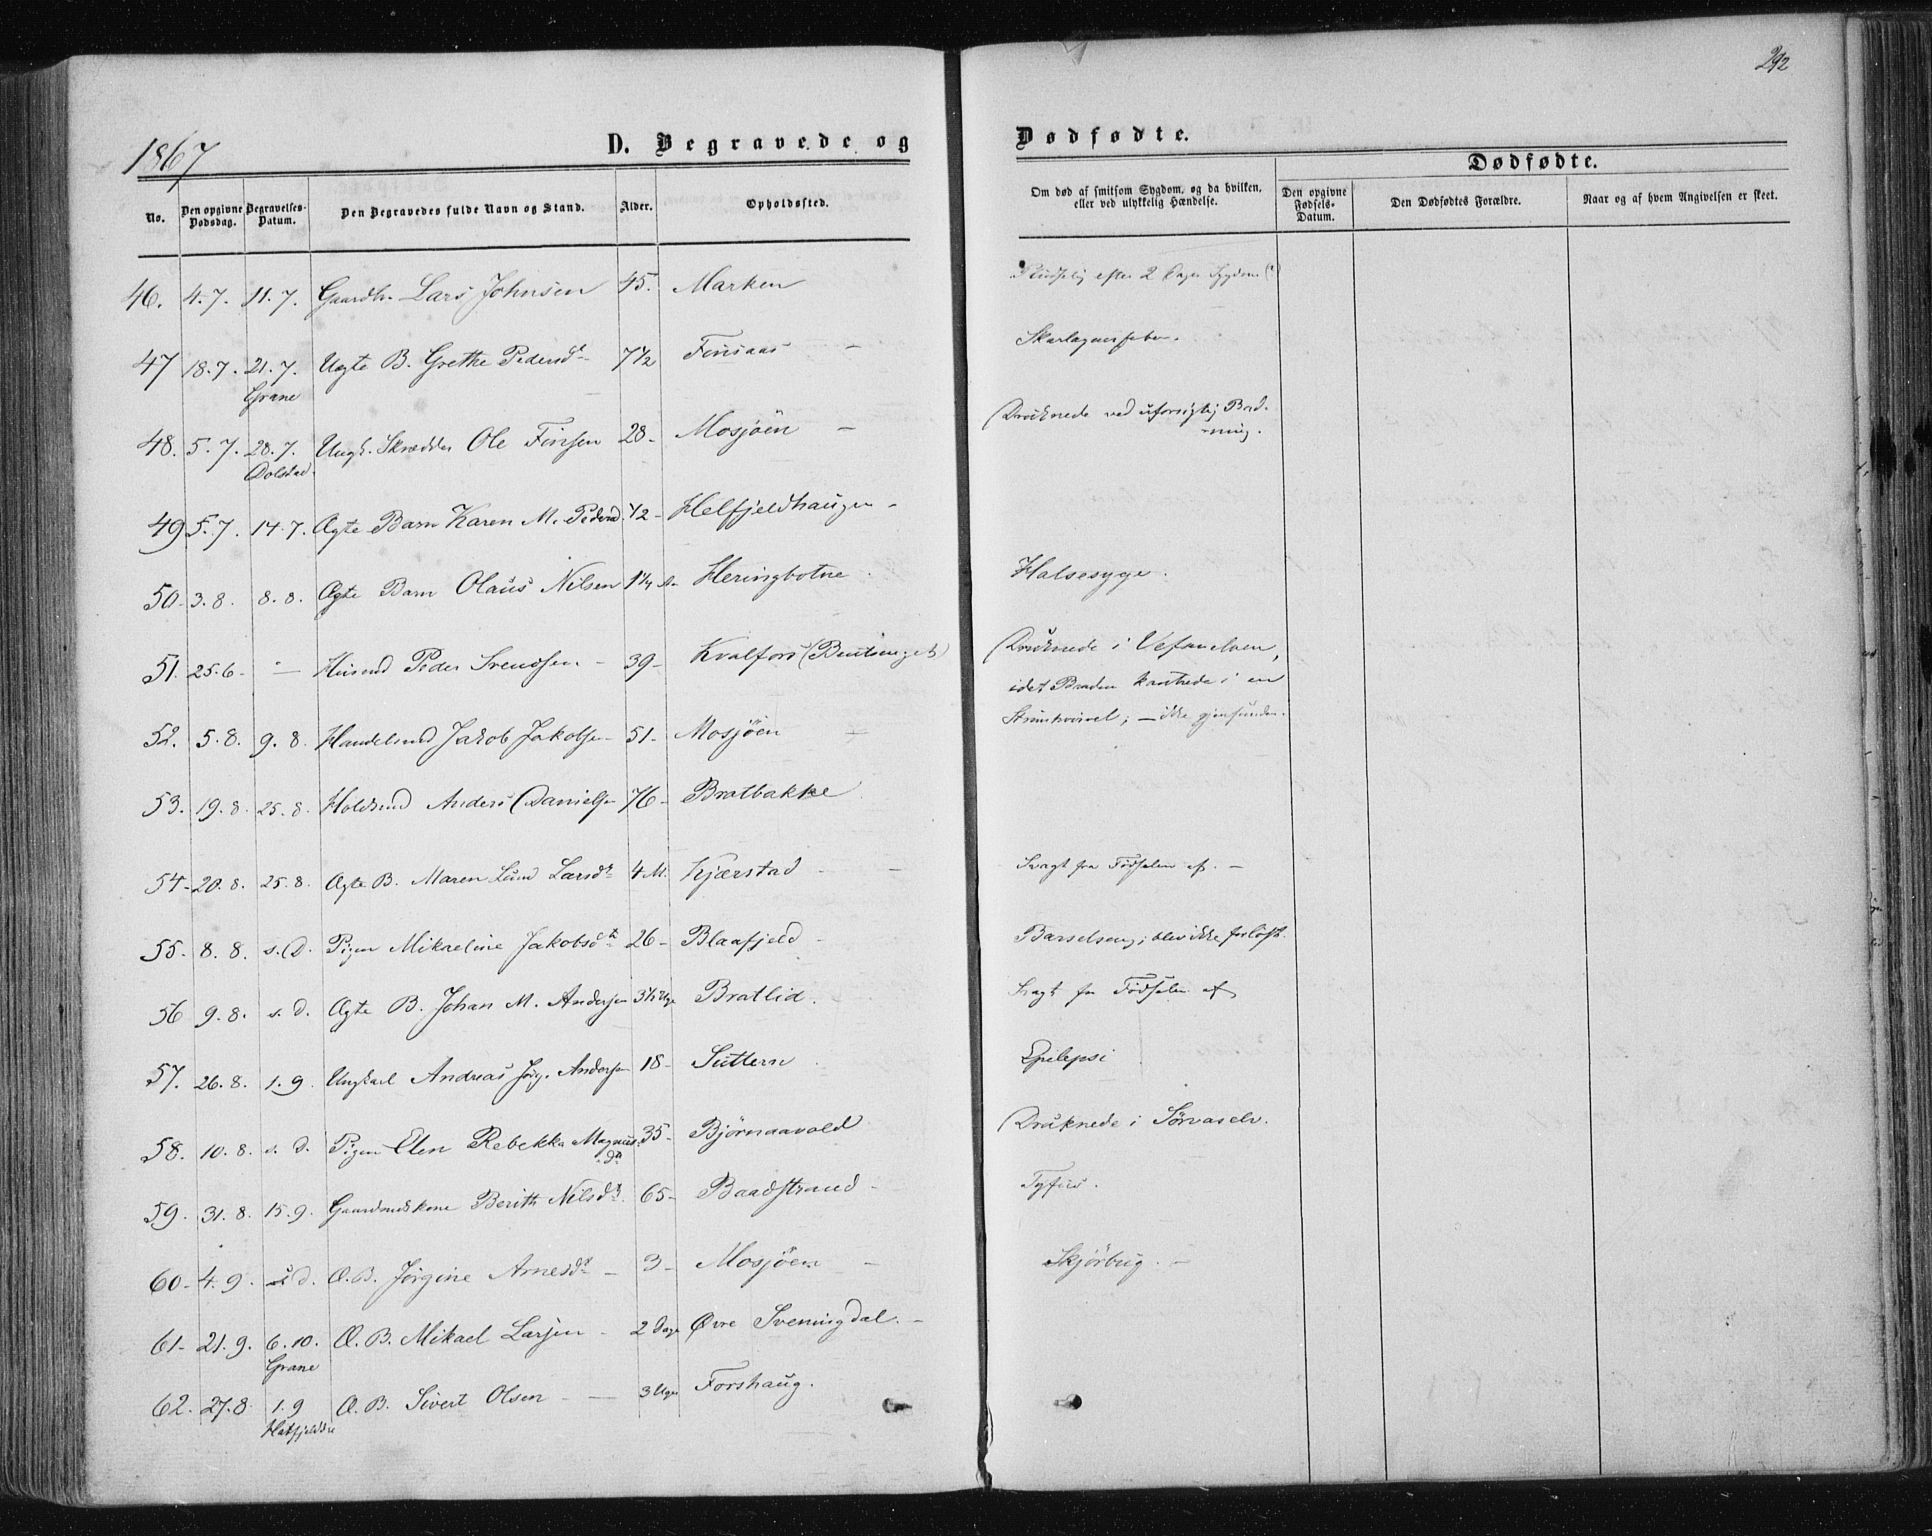 292
1867
D. Begravede og Dødfødte.
Dødfødte.
No.
Den opgivne Dødsdag.
Begravelses-Datum.
Den Begravedes fulde Navn og Stand.
Alder.
Opholdssted.
Om død af smitsom Sygdom, og da hvilken, eller ved ulykkelig Hændelse.
Den opgivne Fødsels-Datum.
Den Dødfødtes Forældre.
Naar og af hvem Angivelsen er skeet.
46. 4.7. 11.7. Gaardbr. Lars Johnsen 45. Marken Pludselig efter 2 Dages Sygdom (?)
47 18.7. 21.7. Uægte B. Grethe Pedersdt. 7 1/2 Finsaas - Skarlagensfeber.
Grane
48. 5.7. 28.7. Ungk. Skrædder Ole Finsen 28- Mosjöen - Druknede ved uforsigtig Bad-
Dolstad. ning.
49 5.7. 14.7. Ægte Barn Karen M. Pedersd. 1/2- Helfjeldhaugen -
50. 3.8. 8.8. Ægte Barn Olaus Nilsen 1 1/4 A. Heringbotne. Halsesyge.
51. 25.6- - Husmd Peder Svendsen - 39- Kvalfors Druknede i Vefsnelven,
idet Baaden kantrede i en
Strømhvirvel; - ikke gjenfunden.
52. 5.8. 9.8. Handelsmd Jakob Jakobsen- 51- Mosjöen -
53. 19.8. 25.8. Holdsmd Anders Danielsen 76- Bratbakke
54- 20.8. 25.8. Ægte B. Maren Lund Larsdt. 4 M. Kjærstad - Svagt fra Födselen af. -
55. 8.8. s.D. Pigen Mikaeline Jakobsdt. 26- Blaafjeld - Barselseng; blev ikke forlöst.
56 9.8. s.d. Ægte B. Johan M. Andersen 3 1/2 Uge Bratlid. Svagt fra Födselen af
57. 26.8. 1.9. Ungkarl Andreas Jörg. Andersen 18- Suttern. Epilepsi
58. 10.8. s.d. Pigen Elen Rebekka Magnus- 35- Björnaavold Druknede i Sørvaselv.
dt.
59. 31.8. 15.9. Gaardmdskone Berith Nilsdt. 65- Baadstrand - Tyfus.
60- 4.9. s.d. Æ.B. Jørgine Arnesdt. - 3- Mosjöen - Skjörbug. -
61- 21.9. 6.10. Æ.B. Mikael Larsen - 2 Dage Øvre Svenningdal. -
Grane
62. 27.8 1.9 Æ.B. Sivert Olsen - 3 Uger Forshaug.
Hatfjelddal